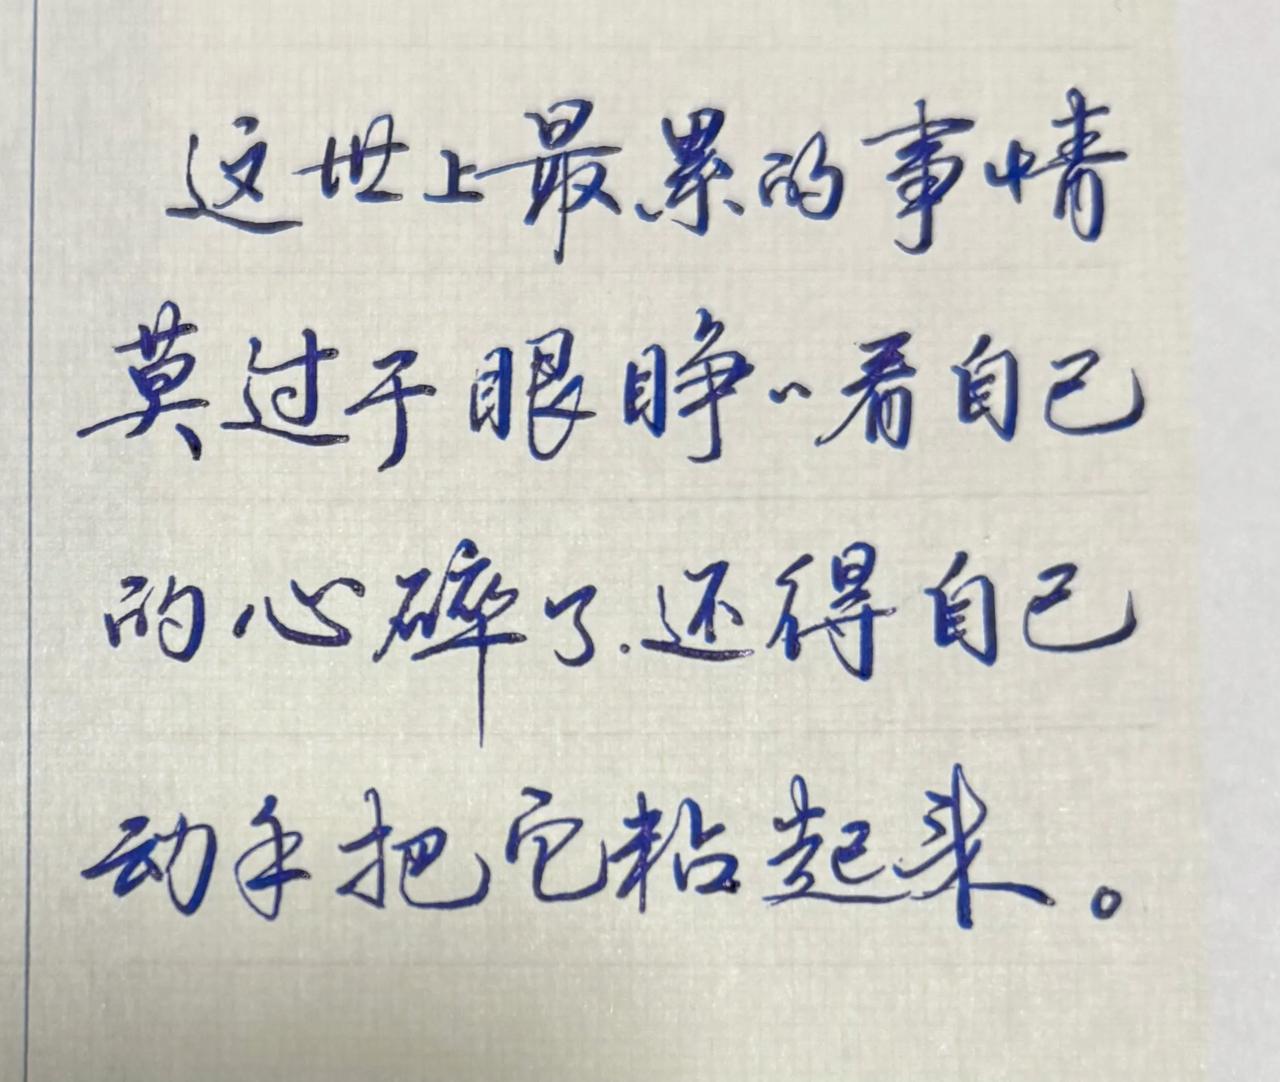 这世上最累的事情
莫过于眼睁〃看自己
的心碎了.还得自己
动手把它粘起来。